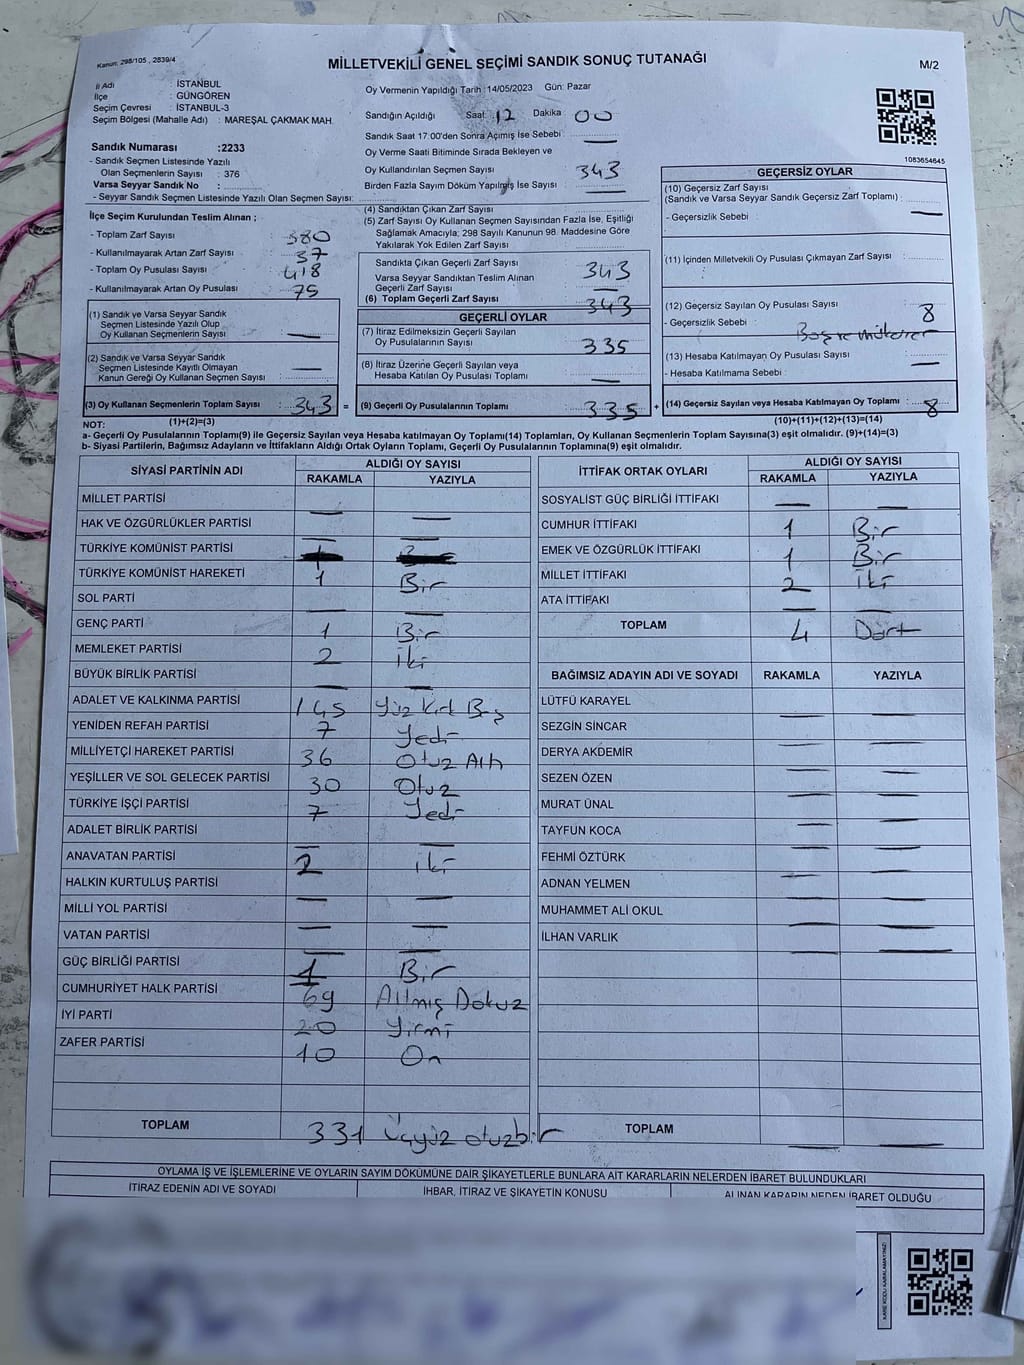 Kanun: 298/105 , 2839/4
MİLLETVEKİLİ GENEL SEÇİMİ SANDIK SONUÇ TUTANAĞI
M/2
İl Adı : İSTANBUL
İlçe : GÜNGÖREN
Seçim Çevresi : İSTANBUL-3
Seçim Bölgesi (Mahalle Adı) : MAREŞAL ÇAKMAK MAH.
Sandık Numarası :2233
- Sandık Seçmen Listesinde Yazılı
Olan Seçmenlerin Sayısı : 376
Varsa Seyyar Sandık No :
- Seyyar Sandık Seçmen Listesinde Yazılı Olan Seçmen Sayısı:
Oy Vermenin Yapıldığı Tarih :14/05/2023 Gün: Pazar
Sandığın Açıldığı Saat 12 Dakika 00
Sandık Saat 17:00'den Sonra Açımış İse Sebebi
Oy Verme Saati Bitiminde Sırada Bekleyen ve
Oy Kullandırılan Seçmen Sayısı 343
Birden Fazla Sayım Döküm Yapılmış İse Sayısı —
1083654645
İlçe Seçim Kurulundan Teslim Alınan ;
- Toplam Zarf Sayısı 380
- Kullanılmayarak Artan Zarf Sayısı 37
- Toplam Oy Pusulası Sayısı 418
- Kullanılmayarak Artan Oy Pusulası 75
(1) Sandık ve Varsa Seyyar Sandık
Seçmen Listesinde Yazılı Olup
Oy Kullanan Seçmenlerin Sayısı —
(2) Sandık ve Varsa Seyyar Sandık
Seçmen Listesinde Kayıtlı Olmayan
Kanun Gereği Oy Kullanan Seçmen Sayısı —
(3) Oy Kullanan Seçmenlerin Toplam Sayısı 343 =
(1)+(2)=(3)
(4) Sandıktan Çıkan Zarf Sayısı
(5) Zarf Sayısı Oy Kullanan Seçmen Sayısından Fazla İse, Eşitliği
Sağlamak Amacıyla; 298 Sayılı Kanunun 98. Maddesine Göre
Yakılarak Yok Edilen Zarf Sayısı
Sandıkta Çıkan Geçerli Zarf Sayısı 343
Varsa Seyyar Sandıktan Teslim Alınan
Geçerli Zarf Sayısı —
(6) Toplam Geçerli Zarf Sayısı 343
GEÇERLİ OYLAR
(7) İtiraz Edilmeksizin Geçerli Sayılan
Oy Pusulalarının Sayısı 335
(8) İtiraz Üzerine Geçerli Sayılan veya
Hesaba Katılan Oy Pusulası Toplamı —
(9) Geçerli Oy Pusulalarının Toplamı 335 +
GEÇERSİZ OYLAR
(10) Geçersiz Zarf Sayısı
(Sandık ve Varsa Seyyar Sandık Geçersiz Zarf Toplamı) :
- Geçersizlik Sebebi : —
(11) İçinden Milletvekili Oy Pusulası Çıkmayan Zarf Sayısı
(12) Geçersiz Sayılan Oy Pusulası Sayısı 8
- Geçersizlik Sebebi :
(13) Hesaba Katılmayan Oy Pusulası Sayısı —
- Hesaba Katılmama Sebebi :
(14) Geçersiz Sayılan veya Hesaba Katılmayan Oy Toplamı : 8
(10)+(11)+(12)+(13)=(14)
NOT:
a- Geçerli Oy Pusulalarının Toplamı(9) ile Geçersiz Sayılan veya Hesaba katılmayan Oy Toplamı(14) Toplamları, Oy Kullanan Seçmenlerin Toplam Sayısına(3) eşit olmalıdır. (9)+(14)=(3)
b- Siyasi Partilerin, Bağımsız Adayların ve İttifakların Aldığı Ortak Oyların Toplamı, Geçerli Oy Pusulalarının Toplamına(9) eşit olmalıdır.
SİYASİ PARTİNİN ADI ALDIĞI OY SAYISI
RAKAMLA YAZIYLA
MİLLET PARTİSİ —
HAK VE ÖZGÜRLÜKLER PARTİSİ — —
TÜRKİYE KOMÜNİST PARTİSİ
TÜRKİYE KOMÜNİST HAREKETİ 1 Bir
SOL PARTİ — —
GENÇ PARTİ 1 Bir
MEMLEKET PARTİSİ 2 İki
BÜYÜK BİRLİK PARTİSİ — —
ADALET VE KALKINMA PARTİSİ 145 Yüz Kırk Beş
YENİDEN REFAH PARTİSİ 7 Yedi
MİLLİYETÇİ HAREKET PARTİSİ 36 Otuz Altı
YEŞİLLER VE SOL GELECEK PARTİSİ 30 Otuz
TÜRKİYE İŞÇİ PARTİSİ 7 Yedi
ADALET BİRLİK PARTİSİ — —
ANAVATAN PARTİSİ 2 iki
HALKIN KURTULUŞ PARTİSİ — —
MİLLİ YOL PARTİSİ — —
VATAN PARTİSİ — —
GÜÇ BİRLİĞİ PARTİSİ 1 Bir
CUMHURİYET HALK PARTİSİ 69 Altmış Dokuz
İYİ PARTİ 20 Yirmi
ZAFER PARTİSİ 10 On
TOPLAM 331 Üçyüz otuzbir
İTTİFAK ORTAK OYLARI ALDIĞI OY SAYISI
RAKAMLA YAZIYLA
SOSYALİST GÜÇ BİRLİĞİ İTTİFAKI — —
CUMHUR İTTİFAKI 1 Bir
EMEK VE ÖZGÜRLÜK İTTİFAKI 1 Bir
MİLLET İTTİFAKI 2 İki
ATA İTTİFAKI — —
TOPLAM 4 Dört
BAĞIMSIZ ADAYIN ADI VE SOYADI RAKAMLA YAZIYLA
LÜTFÜ KARAYEL — —
SEZGİN SİNCAR — —
DERYA AKDEMİR — —
SEZEN ÖZEN — —
MURAT ÜNAL — —
TAYFUN KOCA — —
FEHMİ ÖZTÜRK — —
ADNAN YELMEN — —
MUHAMMET ALİ OKUL — —
İLHAN VARLIK — —
TOPLAM — —
OYLAMA İŞ VE İŞLEMLERİNE VE OYLARIN SAYIM DÖKÜMÜNE DAİR ŞİKAYETLERLE BUNLARA AİT KARARLARIN NELERDEN İBARET BULUNDUKLARI
İTİRAZ EDENİN ADI VE SOYADI İHBAR, İTİRAZ VE ŞİKAYETİN KONUSU ALINAN KARARIN NEDEN İBARET OLDUĞU
KARE KODU KARALAMAYINIZ!